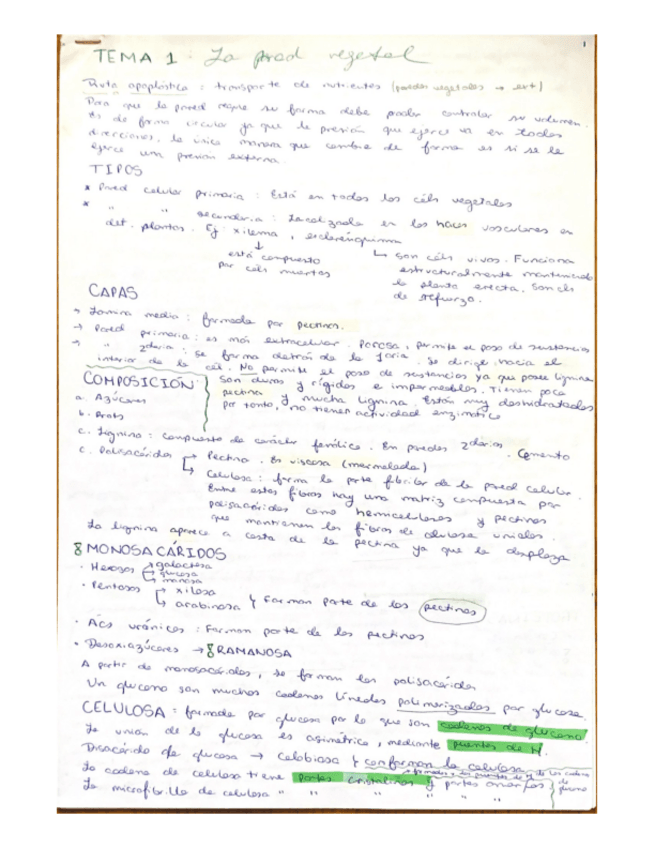 1
TEMA 1: La pared vegetal
Ruta apoplástica: transporte de nutrientes (paredes vegetales → ext)
Para que la pared regule su forma debe poder controlar su volumen.
Es de forma circular ya que la presión que ejerce va en todas
direcciones, la única manera que cambie de forma es si se le
ejerce una presión externa.
TIPOS
* Pared celular primaria: Está en todas las céls vegetales
* " " secundaria: Localizada en los haces vasculares en
det. plantas. Ej: xilema, esclerénquima
↓
está compuesto
por céls muertas
↳ son céls vivas. Funciona
estructuralmente manteniendo
la planta erecta. Son céls
de refuerzo.
CAPAS
→ Lámina media: formada por pectinas.
→ Pared primaria: es más extracelular. Porosa, permite el paso de sustancias
→ " 2daria: se forma detrás de la 1aria. Se dirige hacia el
interior de la cél. No permite el paso de sustancias ya que posee lignina
Son duras y rígidas e impermeables. Tienen poca
pectina y mucha lignina. Están muy deshidratadas
por tanto, no tienen actividad enzimática
COMPOSICIÓN:
a. Azúcares
b. Prots
c. Lignina: compuesto de carácter fenólico. En paredes 2darias. Cemento
c. Polisacáridos → Pectina. Es viscosa (mermelada)
↳ Celulosa: forma la parte fibrilar de la pared celular.
Entre estas fibras hay una matriz compuesta por
polisacáridos como hemicelulosas y pectinas
que mantienen las fibras de celulosa unidas.
La lignina aparece a costa de la pectina ya que la desplaza
8 MONOSACÁRIDOS
· Hexosas → galactosa
→ glucosa
→ manosa
· Pentosas → xilosa
↳ arabinosa } Forman parte de las pectinas
· Acs urónicos: Forman parte de las pectinas
· Desoxiazúcares → RAMANOSA
A partir de monosacáridos, se forman los polisacáridos
Un glucano son muchas cadenas lineales polimerizadas por glucosa.
CELULOSA: formada por glucosa por lo que son cadenas de glucano
La unión de la glucosa es asimétrica, mediante puentes de H.
Disacárido de glucosa → Celobiosa y conforman la celulosa
La cadena de celulosa tiene partes cristalinas y partes amorfas
La microfibrilla de celulosa " " " " "